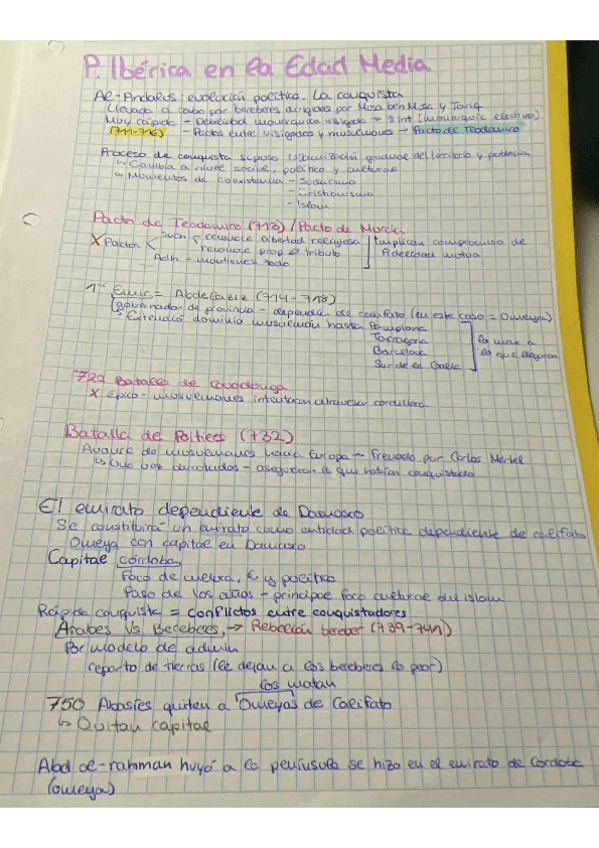 P. Ibérica en la Edad Media
Al-Andalus: evolución política. La conquista
Llevada a cabo por bereberes dirigidos por Musa ben Musa y Tariq
Muy rápida - Debilidad monarquica visigoda → 3 int (monarquic electiva)
(711-716) - Pactos entre visigodos y musulmanes → Pacto de Teodomiro
Proceso de conquista supuso islamización gradual del territorio y población
↳ Cambia a nivel social, político y cultural
↳ Momentos de coexistencia - Judaísmo
- Cristianismo
- Islam
Pacto de Teodomiro (713) / Pacto de Murcia
X Pactan reconoce libertad religiosa Implican compromiso de
reconoce prop tributo fidelidad mutua
Adm - mantienen todo
1er Emir = Abdelaziz (714-718)
gobernador de provincia - dependía del califato (en este caso = Omeya)
↳ Extendió dominio musulmán hasta Pamplona
Tarragona lo max a
Barcelona lo que llegaron
Sur de la Galia
722 Batalla de Covadonga
X épico - musulmanes intentaron atravesar cordillera
Batalla de Poitiers (732)
Avance de musulmanes hacia Europa → frenado por Carlos Martel
↳ Una vez derrotados - aseguraron lo que habían conquistado
El emirato dependiente de Damasco
Se constituirá un emirato como entidad política dependiente de califato
Omeya con capital en Damasco
Capital córdoba
Foco de cultura, € y política
Paso de los años - principal foco cultural del islam
Rápida conquista = conflictos entre conquistadores
Árabes Vs Bereberes → Rebelión bereber (739-741)
Por modelo de admin
reparto de tierras (le dejan a los bereberes lo peor)
los matan
750 Abasíes quitan a Omeyas de Califato
↳ Quitan capital
Abd al-rahman huyó a la península se hizo en el emirato de Córdoba
(omeya)